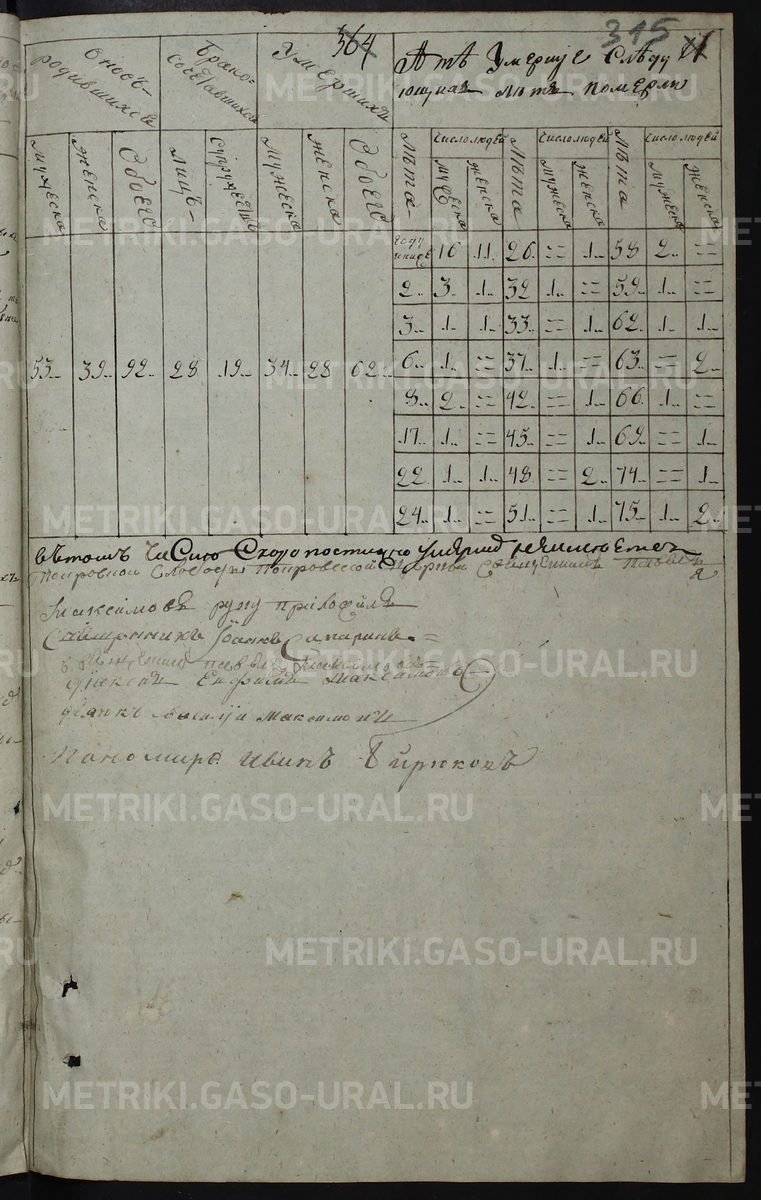 364 315
О новь- Брако- Умершихъ А тѣ Умершiе Слѣду
родившихся сочетавшихся ющихъ лѣтъ померли
мужеска женска Обоего лицъ- супружествъ мужеска женска Обоего Лѣта- Число людей Лѣта Число людей Лѣта Число людей
мужеска женска мужеска женска мужеска женска
году 16 11.. 26.. == 1.. 58 2.. ==
2.. 3.. 1.. 32 1.. == 59.. 1.. ==
3.. 1.. 1.. 33.. == 1.. 62.. 1.. 1..
53.. 39.. 92.. 28 19.. 34.. 28 62.. 6.. 1.. == 37.. 1.. == 63.. == 2..
8.. 2.. == 42.. == 1.. 66.. 1.. ==
17.. 1.. == 45.. == 1.. 69.. == 1..
22.. 1.. 1.. 48.. == 2.. 74.. == 1..
24.. 1.. == 51.. == 1.. 75.. 1.. 2..
въ томъ числѣ Скоропостижно
Покровской Слободы Покровской церкви Священникъ
Максимовъ руку приложилъ
Священникъ Iоаннъ Сапаринъ
дiаконъ Ефимъ Максимовъ
дьячкъ Василiй Максимовъ
Пономарь Иванъ Бирюковъ
METRIKI.GASO-URAL.RU